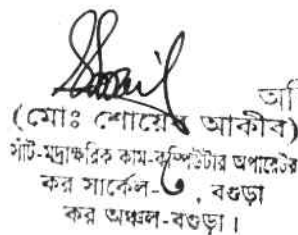 অি
(মোঃ শোয়েব আকীব)
সাঁট-মুদ্রাক্ষরিক কাম-কম্পিউটার অপারেটর
কর সার্কেল-৬, বগুড়া
কর অঞ্চল-বগুড়া।